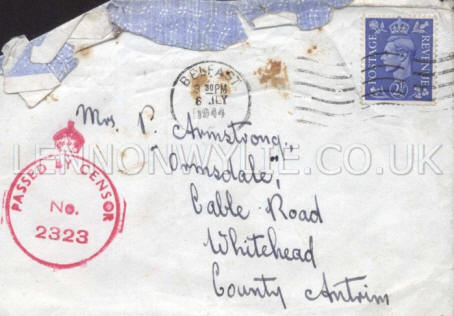 POSTAGE REVENUE
2½
BELFAST
30PM
6 JLY
1944
Mrs P. Armstrong,
"Ormsdale",
Cable Road
Whitehead
County Antrim
PASSED BY CENSOR
No.
2323
LENNONWYLIE.CO.UK